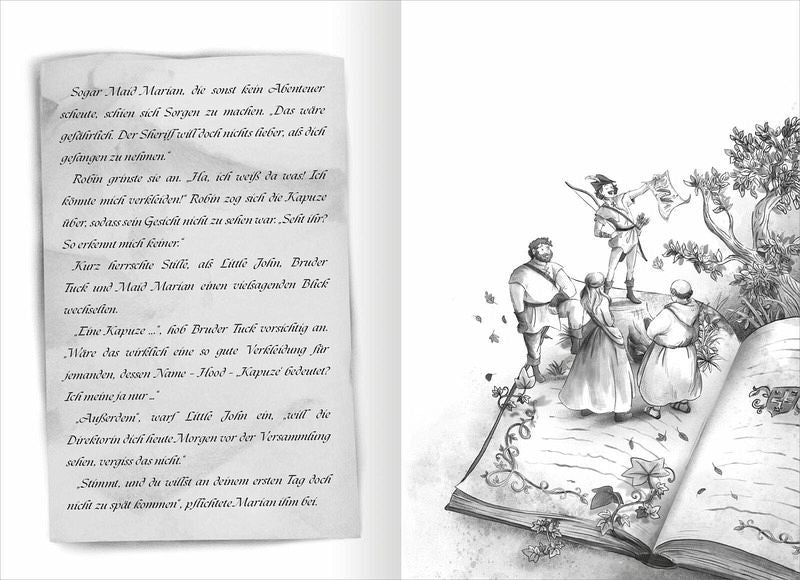 Sogar Maid Marian, die sonst kein Abenteuer
scheute, schien sich Sorgen zu machen. „Das wäre
gefährlich. Der Sheriff will doch nichts lieber, als dich
gefangen zu nehmen.“
Robin grinste sie an. „Ha, ich weiß da was! Ich
könnte mich verkleiden!“ Robin zog sich die Kapuze
über, sodass sein Gesicht nicht zu sehen war. „Seht ihr?
So erkennt mich keiner.“
Kurz herrschte Stille, als Little John, Bruder
Tuck und Maid Marian einen vielsagenden Blick
wechselten.
„Eine Kapuze ...“, hob Bruder Tuck vorsichtig an.
„Wäre das wirklich eine so gute Verkleidung für
jemanden, dessen Name – Hood – ‚Kapuze‘ bedeutet?
Ich meine ja nur ...“
„Außerdem“, warf Little John ein, „will die
Direktorin dich heute Morgen vor der Versammlung
sehen, vergiss das nicht.“
„Stimmt, und du willst an deinem ersten Tag doch
nicht zu spät kommen“, pflichtete Marian ihm bei.